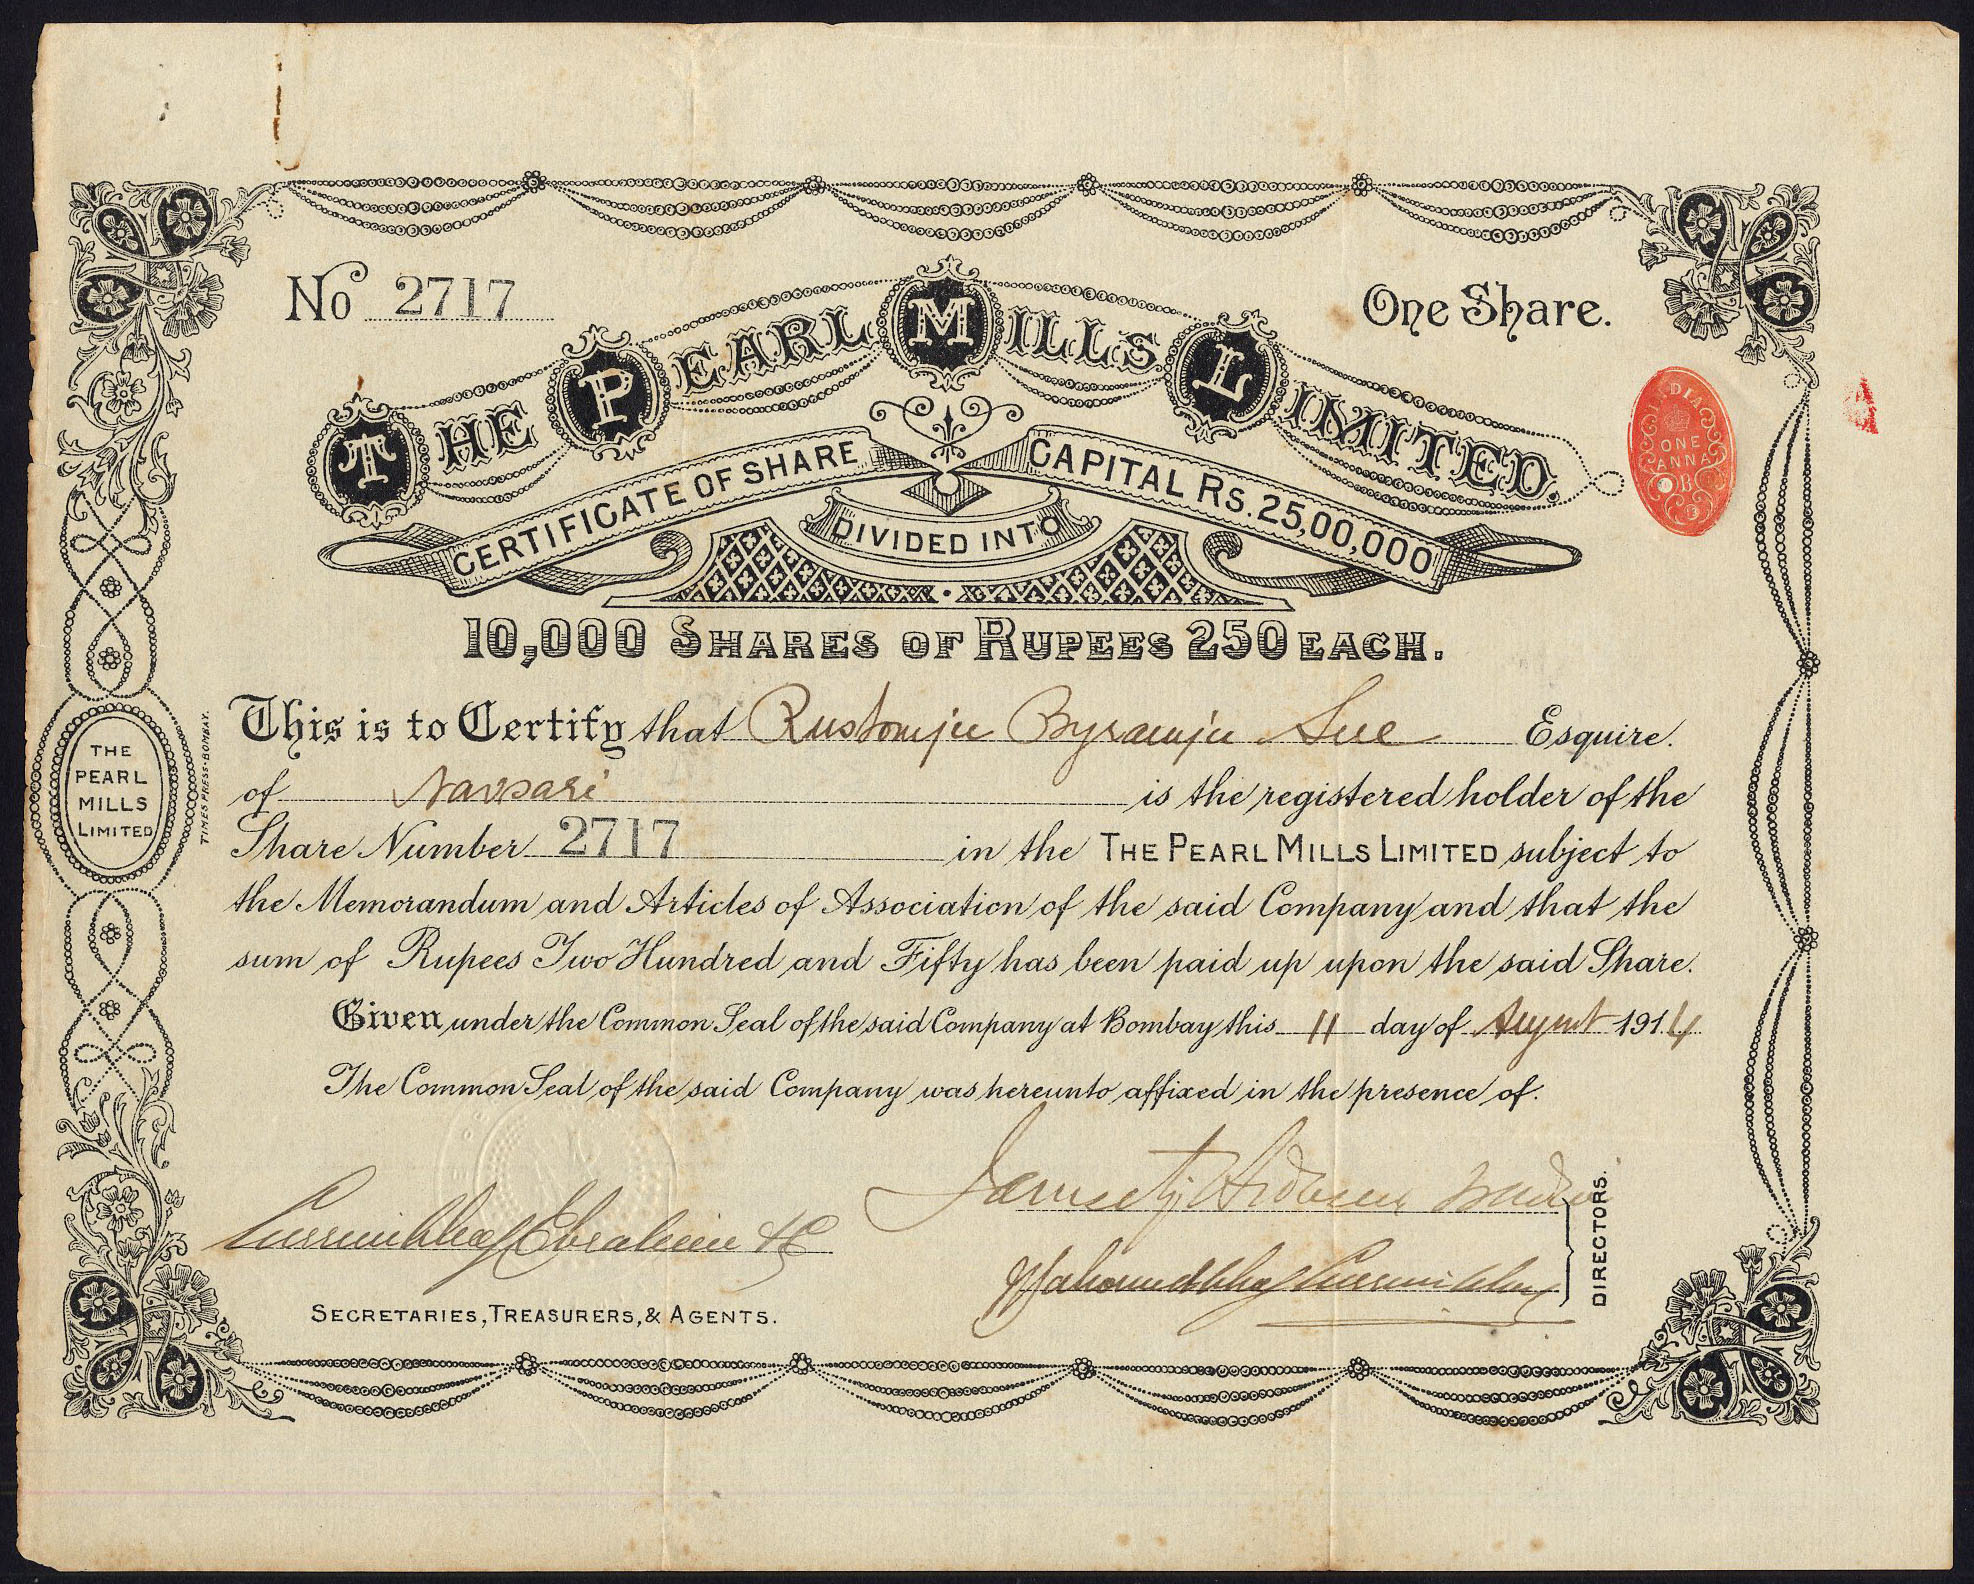 No 2717
One Share.
THE PEARL MILLS LIMITED.
CERTIFICATE OF SHARE CAPITAL RS. 25,00,000
DIVIDED INTO
10,000 SHARES OF RUPEES 250 EACH.
INDIA
ONE
ANNA
B
This is to Certify that Rustomjee Byramjee Esquire.
of Navsari is the registered holder of the
Share Number 2717 in the THE PEARL MILLS LIMITED subject to
the Memorandum and Articles of Association of the said Company and that the
sum of Rupees Two Hundred and Fifty has been paid up upon the said Share.
Given under the Common Seal of the said Company at Bombay this 11 day of August 1914
The Common Seal of the said Company was hereunto affixed in the presence of.
Currimbhoy Ebrahim & Co
Jamsetji Ardaseer Wadia
Mahomedbhoy Currimbhoy
DIRECTORS.
SECRETARIES, TREASURERS, & AGENTS.
THE
PEARL
MILLS
LIMITED
TIMES PRESS-BOMBAY.